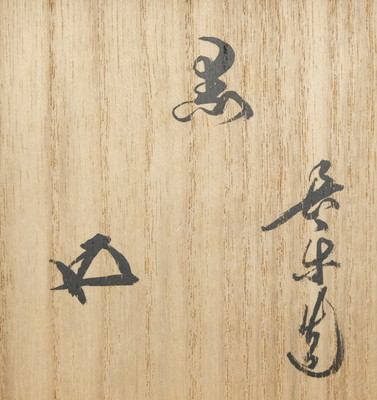 黒
長楽造